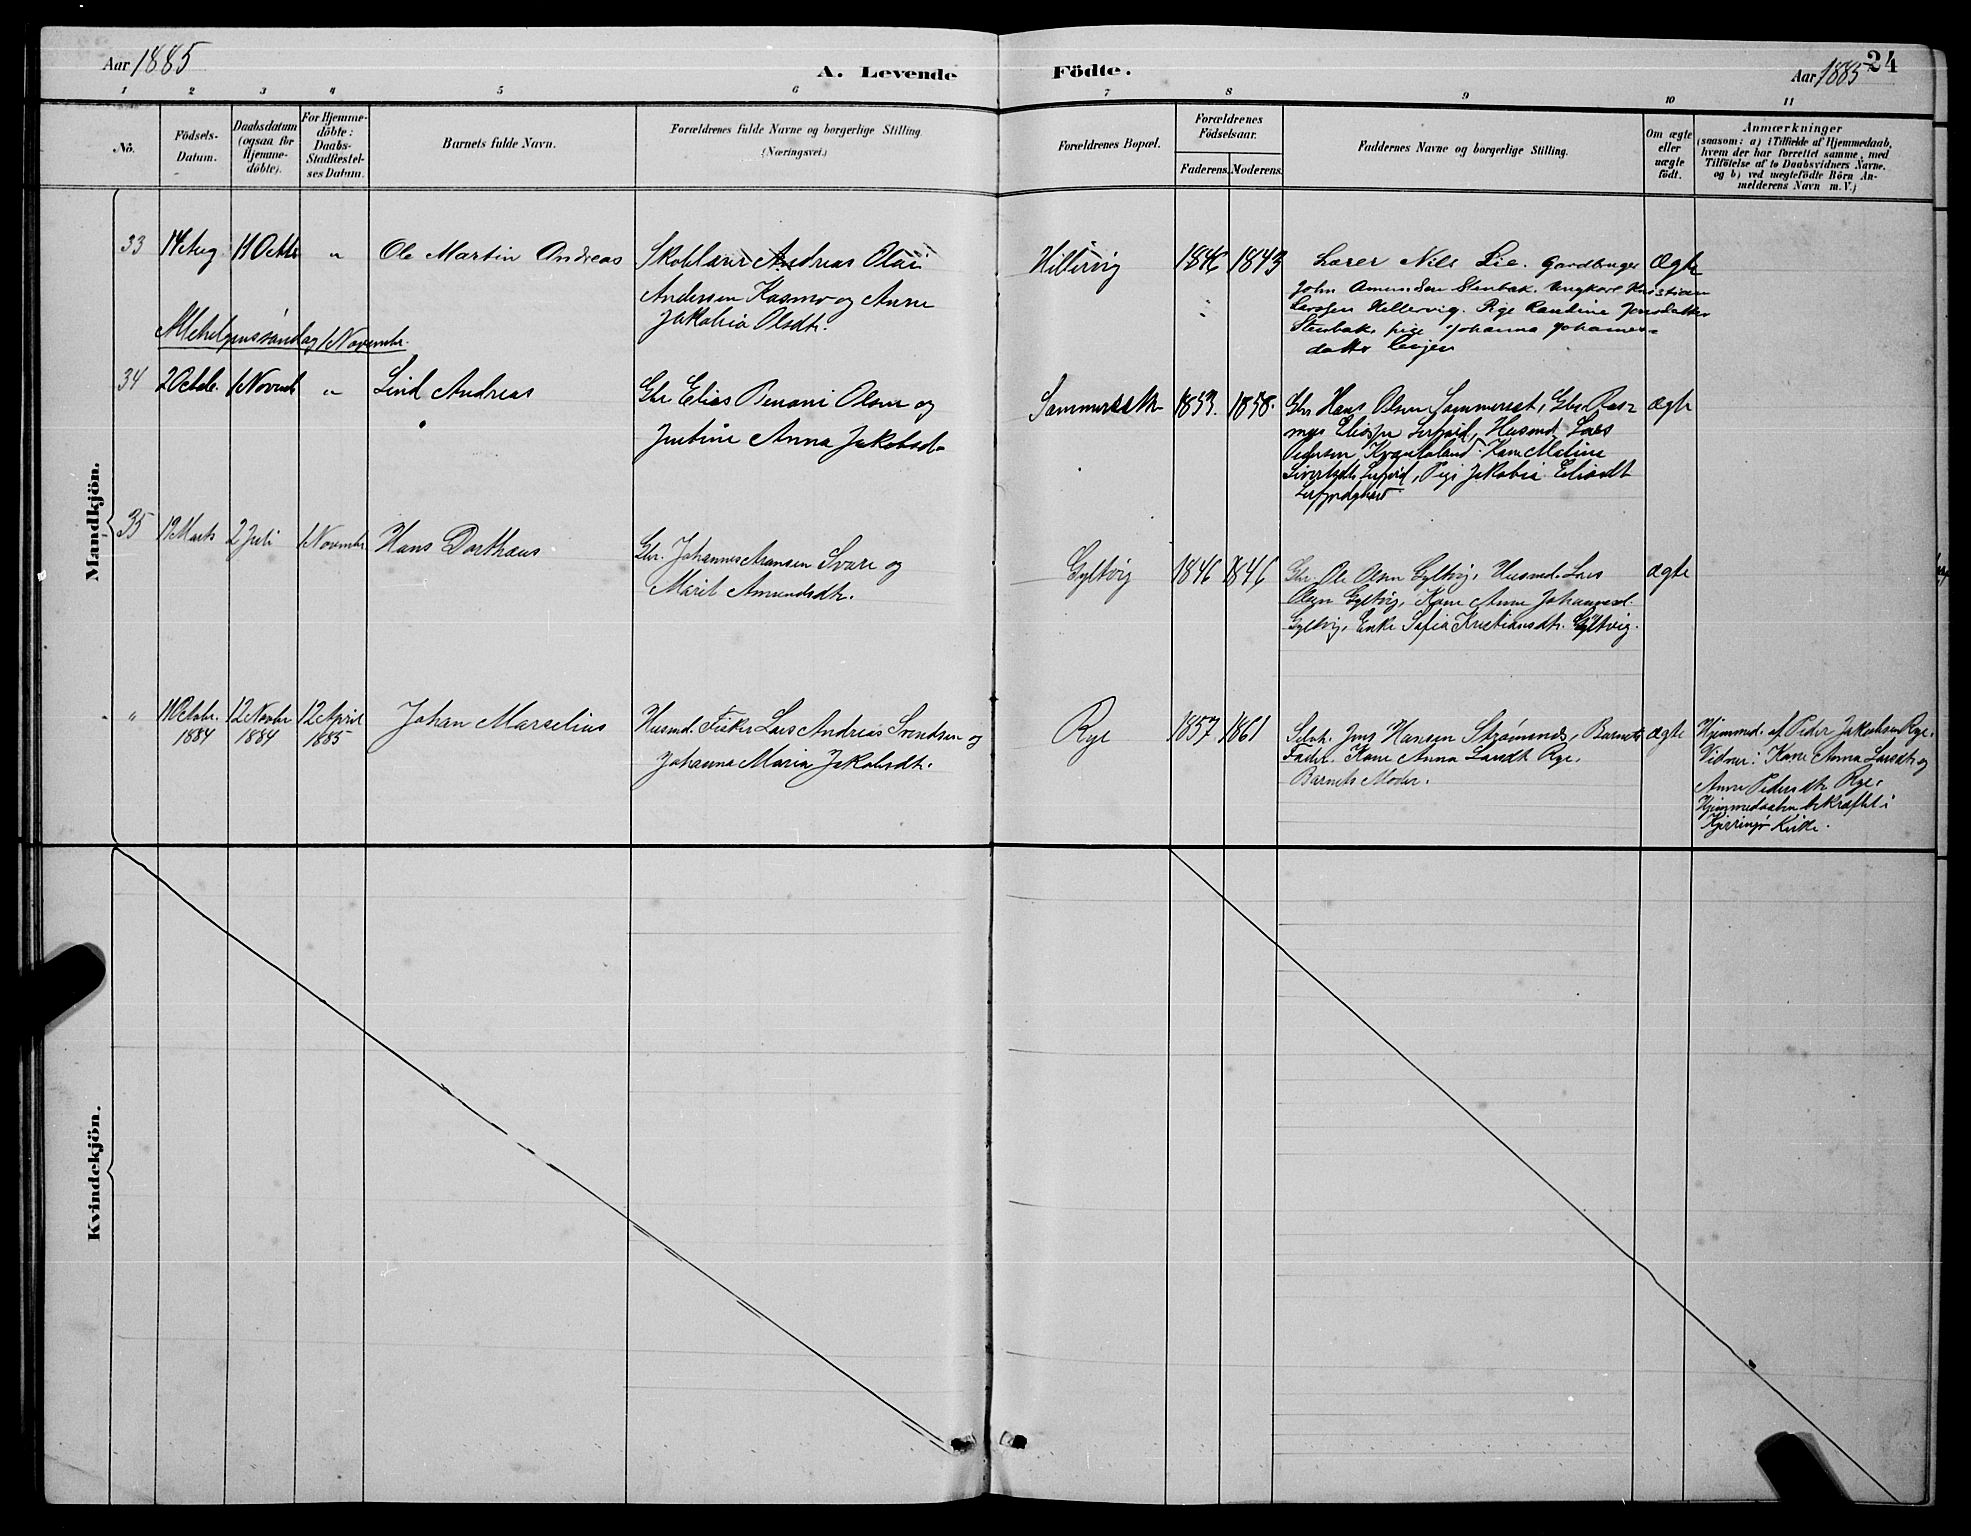 Aar 1885
A. Levende
Födte.
Aar 1885
24
1 2 3 4 5 6 7 8 9 10 11
No.
Födsels-
Datum.
Daabsdatum
(ogsaa for
Hjemme-
döbte).
For Hjemme-
döbte:
Daabs-
Stadfæstel-
ses Datum.
Barnets fulde Navn.
Forældrenes fulde Navne og borgerlige Stilling.
(Næringsvei.)
Forældrenes Bopæl.
Forældrenes
Födselsaar.
Faderens. Moderens.
Faddernes Navne og borgerlige Stilling.
Om ægte
eller
uægte
födt.
Anmærkninger
(saasom: a) i Tilfælde af Hjemmedaab,
hvem der har forrettet samme, med
Tilföielse af to Daabsvidners Navne.
og b) ved uægtefödte Börn An-
melderens Navn m. V.)
Mandkjön.
33 14 Aug 11 Octbr " Ole Martin Andreas
Skolelærer Andreas Olai
Andersen Kosmo og Anne
Jakobia Olsdtr.
Hillervig 1846 1843
Lærer Nils Lie. Gaardbruger
John Amundsen Stenbak. Ungkarl Kristian
Larssen Hellervig. Pige Randine Jensdatter
Stenbak, pige Johanna Johannes-
datter
Ægte
Allehelgenssöndag 1 Novembr.
34 2 Octobr. 1 Novmb " Lind Andreas
Gbr Elias Benoni Olsen og
Justine Anna Jakobsdtr
Sommerseth 1853. 1858.
Gbr Hans Olsen Sommerset, Gbr. Ras-
mus Eliassen Leifjord, Husmd. Lars
Pedersen Kvantoland. Kone Maline
Sivertsdtr Leifjord, Pige Jakobia Eliasdt
Leifjordgaard.
ægte
35 19 Marts 2 Juli 1 Novembr. Hans Dorthæus
Gbr. Johannes Aransen Svare og
Marit Amundsdtr.
Gyltvig 1846 1846
Gbr Ole Olsen Gyltvig, Husmd. Lars
Olsen Gyltvig, Kone Anne Johannesd.
Gyltvig, Enke Sofia Kristiansdtr. Gyltvig.
ægte
" 11 Octobr. 1884 12 Novbr 1884 12 April 1885 Johan Marselius
Husmd. Fisker Lars Andreas Svendsen og
Johanna Maria Jakobsdtr.
Rye 1857 1861
Selvh. Jens Hansen Strømsnes, Barnets
Fader. Kone Anna Larsdt Rye.
Barnets Moder.
ægte
Hjemmed. af Peder Jakobsen Rye.
Vidner: Kone Anna Larsdtr og
Anne Pedersdtr Rye.
Hjemmedaaben bekræftet i
Kjerringø Kirke.
Kvindekjön.